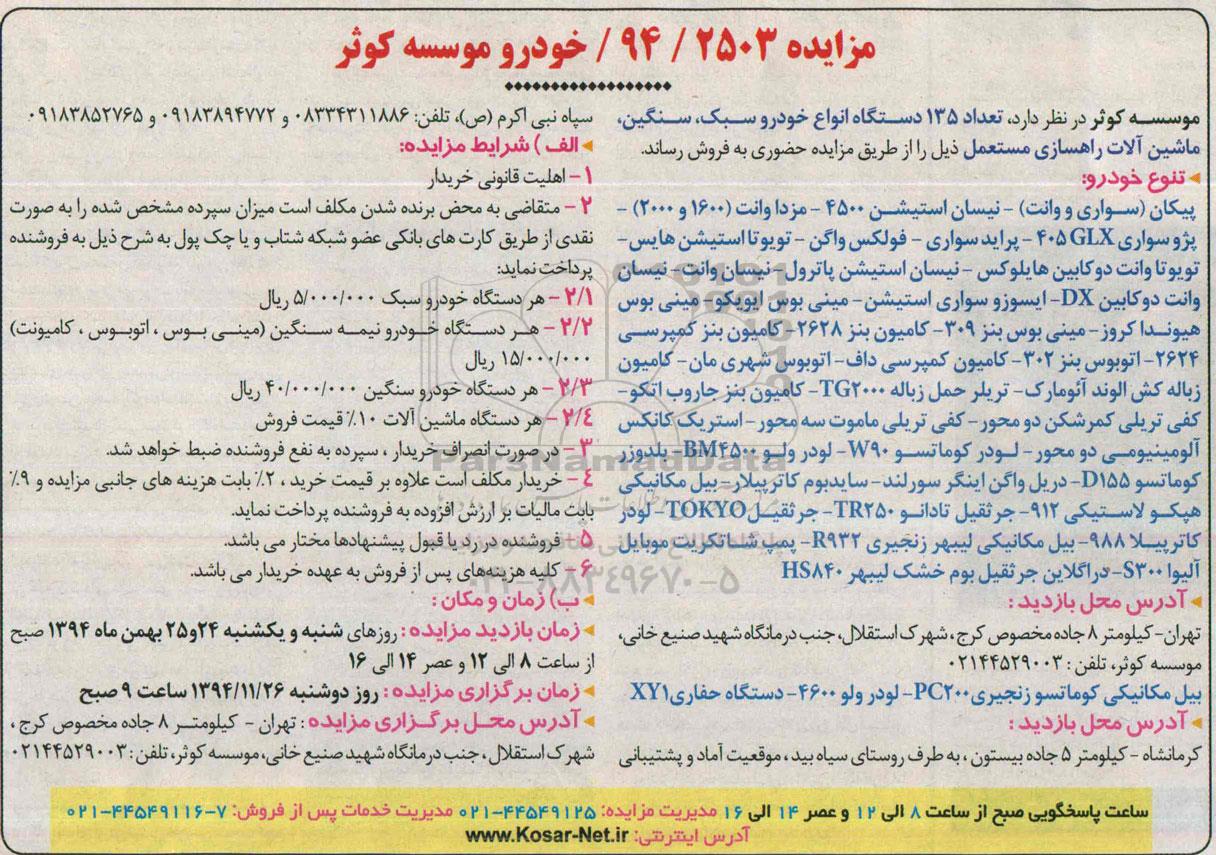 مزایده ۲۵۰۳ / ۹۴ / خودرو موسسه کوثر
موسسه کوثر در نظر دارد، تعداد ۱۳۵ دستگاه انواع خودرو سبک، سنگین،
ماشین آلات راهسازی مستعمل ذیل را از طریق مزایده حضوری به فروش رساند.
تنوع خودرو:
پیکان (سواری و وانت) - نیسان استیشن ۴۵۰۰ - مزدا وانت (۱۶۰۰ و ۲۰۰۰) -
پژو سواری ۴۰۵ GLX - پراید سواری - فولکس واگن - تویوتا استیشن هایس -
تویوتا وانت دو کابین هایلوکس - نیسان استیشن پاترول - نیسان وانت - نیسان
وانت دو کابین DX - ایسوزو سواری استیشن - مینی بوس ایویکو - مینی بوس
هیوندا کروز - مینی بوس بنز ۳۰۹ - کامیون بنز ۲۶۲۸ - کامیون بنز کمپرسی
۲۶۲۴ - اتوبوس بنز ۳۰۲ - کامیون کمپرسی داف - اتوبوس شهری مان - کامیون
زباله کش الوند آئومارک - تریلر حمل زباله TG۲۰۰۰ - کامیون بنز جاروب اتکو -
کفی تریلی کمرشکن دو محور - کفی تریلی ماموت سه محور - استریک کانکس
آلومینیومی دو محور - لودر کوماتسو W۹۰ - لودر ولو BM۴۵۰۰ - بلدوزر
کوماتسو D۱۵۵ - دریل واگن اینگر سورلند - سایدبوم کاترپیلار - بیل مکانیکی
هپکو لاستیکی ۹۱۲ - جرثقیل تادانو TR۲۵۰ - جرثقیل TOKYO - لودر
کاترپیلا ۹۸۸ - بیل مکانیکی لیبهر زنجیری R۹۳۲ - پمپ شاتکریت موبایل
آلیوا S۳۰۰ - دراگلاین جرثقیل بوم خشک لیبهر HS۸۴۰
آدرس محل بازدید :
تهران - کیلومتر ۸ جاده مخصوص کرج، شهرک استقلال، جنب درمانگاه شهید صنیع خانی،
موسسه کوثر، تلفن : ۰۲۱۴۴۵۲۹۰۰۳
بیل مکانیکی کوماتسو زنجیری PC۲۰۰ - لودر ولو ۴۶۰۰ - دستگاه حفاری XY۱
آدرس محل بازدید :
کرمانشاه - کیلومتر ۵ جاده بیستون ، به طرف روستای سیاه بید ، موقعیت آماد و پشتیبانی
سپاه نبی اکرم (ص)، تلفن: ۰۸۳۳۴۳۱۱۸۸۶ و ۰۹۱۸۳۸۹۴۷۷۲ و ۰۹۱۸۳۸۵۲۷۶۵
الف ) شرایط مزایده:
۱- اهلیت قانونی خریدار
۲ - متقاضی به محض برنده شدن مکلف است میزان سپرده مشخص شده را به صورت
نقدی از طریق کارت های بانکی عضو شبکه شتاب و یا چک پول به شرح ذیل به فروشنده
پرداخت نماید:
۲/۱ - هر دستگاه خودرو سبک ۵/۰۰۰/۰۰۰ ریال
۲/۲ - هر دستگاه خودرو نیمه سنگین (مینی بوس ، اتوبوس ، کامیونت)
۱۵/۰۰۰/۰۰۰ ریال
۲/۳ - هر دستگاه خودرو سنگین ۴۰/۰۰۰/۰۰۰ ریال
۲/٤ - هر دستگاه ماشین آلات ۱۰٪ قیمت فروش
۳ - در صورت انصراف خریدار ، سپرده به نفع فروشنده ضبط خواهد شد.
٤ - خریدار مکلف است علاوه بر قیمت خرید ، ۲٪ بابت هزینه های جانبی مزایده و ۹٪
بابت مالیات بر ارزش افزوده به فروشنده پرداخت نماید.
۵ - فروشنده در رد یا قبول پیشنهادها مختار می باشد.
۶ - کلیه هزینه‌های پس از فروش به عهده خریدار می باشد.
ب) زمان و مکان :
زمان بازدید مزایده : روزهای شنبه و یکشنبه ۲۴و۲۵ بهمن ماه ۱۳۹۴ صبح
از ساعت ۸ الی ۱۲ و عصر ۱۴ الی ۱۶
زمان برگزاری مزایده : روز دوشنبه ۱۳۹۴/۱۱/۲۶ ساعت ۹ صبح
آدرس محل برگزاری مزایده : تهران - کیلومتر ۸ جاده مخصوص کرج ،
شهرک استقلال ، جنب درمانگاه شهید صنیع خانی، موسسه کوثر، تلفن : ۰۲۱۴۴۵۲۹۰۰۳
ParsNamadData
۰۲۱-۸۸۳٤۹۶۷۰-۵
ساعت پاسخگویی صبح از ساعت ۸ الی ۱۲ و عصر ۱۴ الی ۱۶ مدیریت مزایده: ۰۲۱-۴۴۵۴۹۱۲۵ مدیریت خدمات پس از فروش: ۰۲۱-۴۴۵۴۹۱۱۶-۷
آدرس اینترنتی: www.Kosar-Net.ir